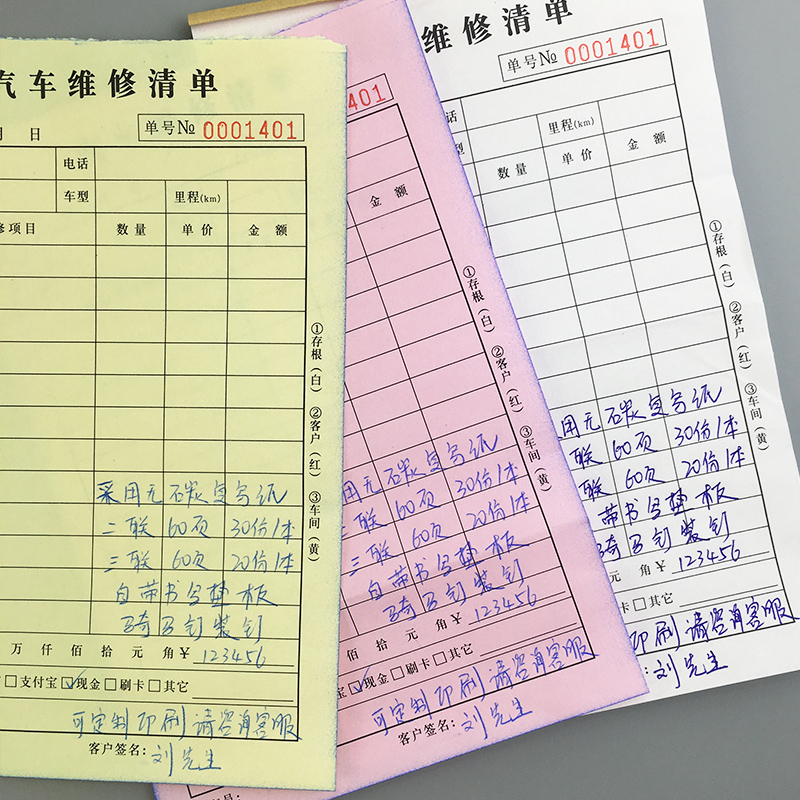 汽车维修清单
月 日
单号№ 0001401
电话
车型 里程(km)
修项目 数量 单价 金额
①存根(白) ②客户(红) ③车间(黄)
采用无碳复写纸
二联 60页 30份1本
三联 60页 20份1本
自带书写垫板
骑马钉装钉
万 仟 佰 拾 元 角¥ 123456
□支付宝☑现金□刷卡□其它
可定制印刷请咨询客服
客户签名: 刘先生
401
金额
①存根(白) ②客户(红) ③车间(黄)
用无碳复写纸
二联 60页 30份1本
三联 60页 20份1本
自带书写垫板
骑马钉装钉
佰 拾 元 角¥ 123456
宝☑现金□刷卡□其它
可定制印刷请咨询客服
客户签名: 刘先生
员:
维修清单
单号№ 0001401
话
型 里程(km)
数量 单价 金额
①存根(白) ②客户(红) ③车间(黄)
用无碳复写纸
联 60页 30份1本
联 60页 20份1本
带书写垫板
马钉装钉
元 角¥ 123456
卡□其它
印刷请咨询客服
刘先生